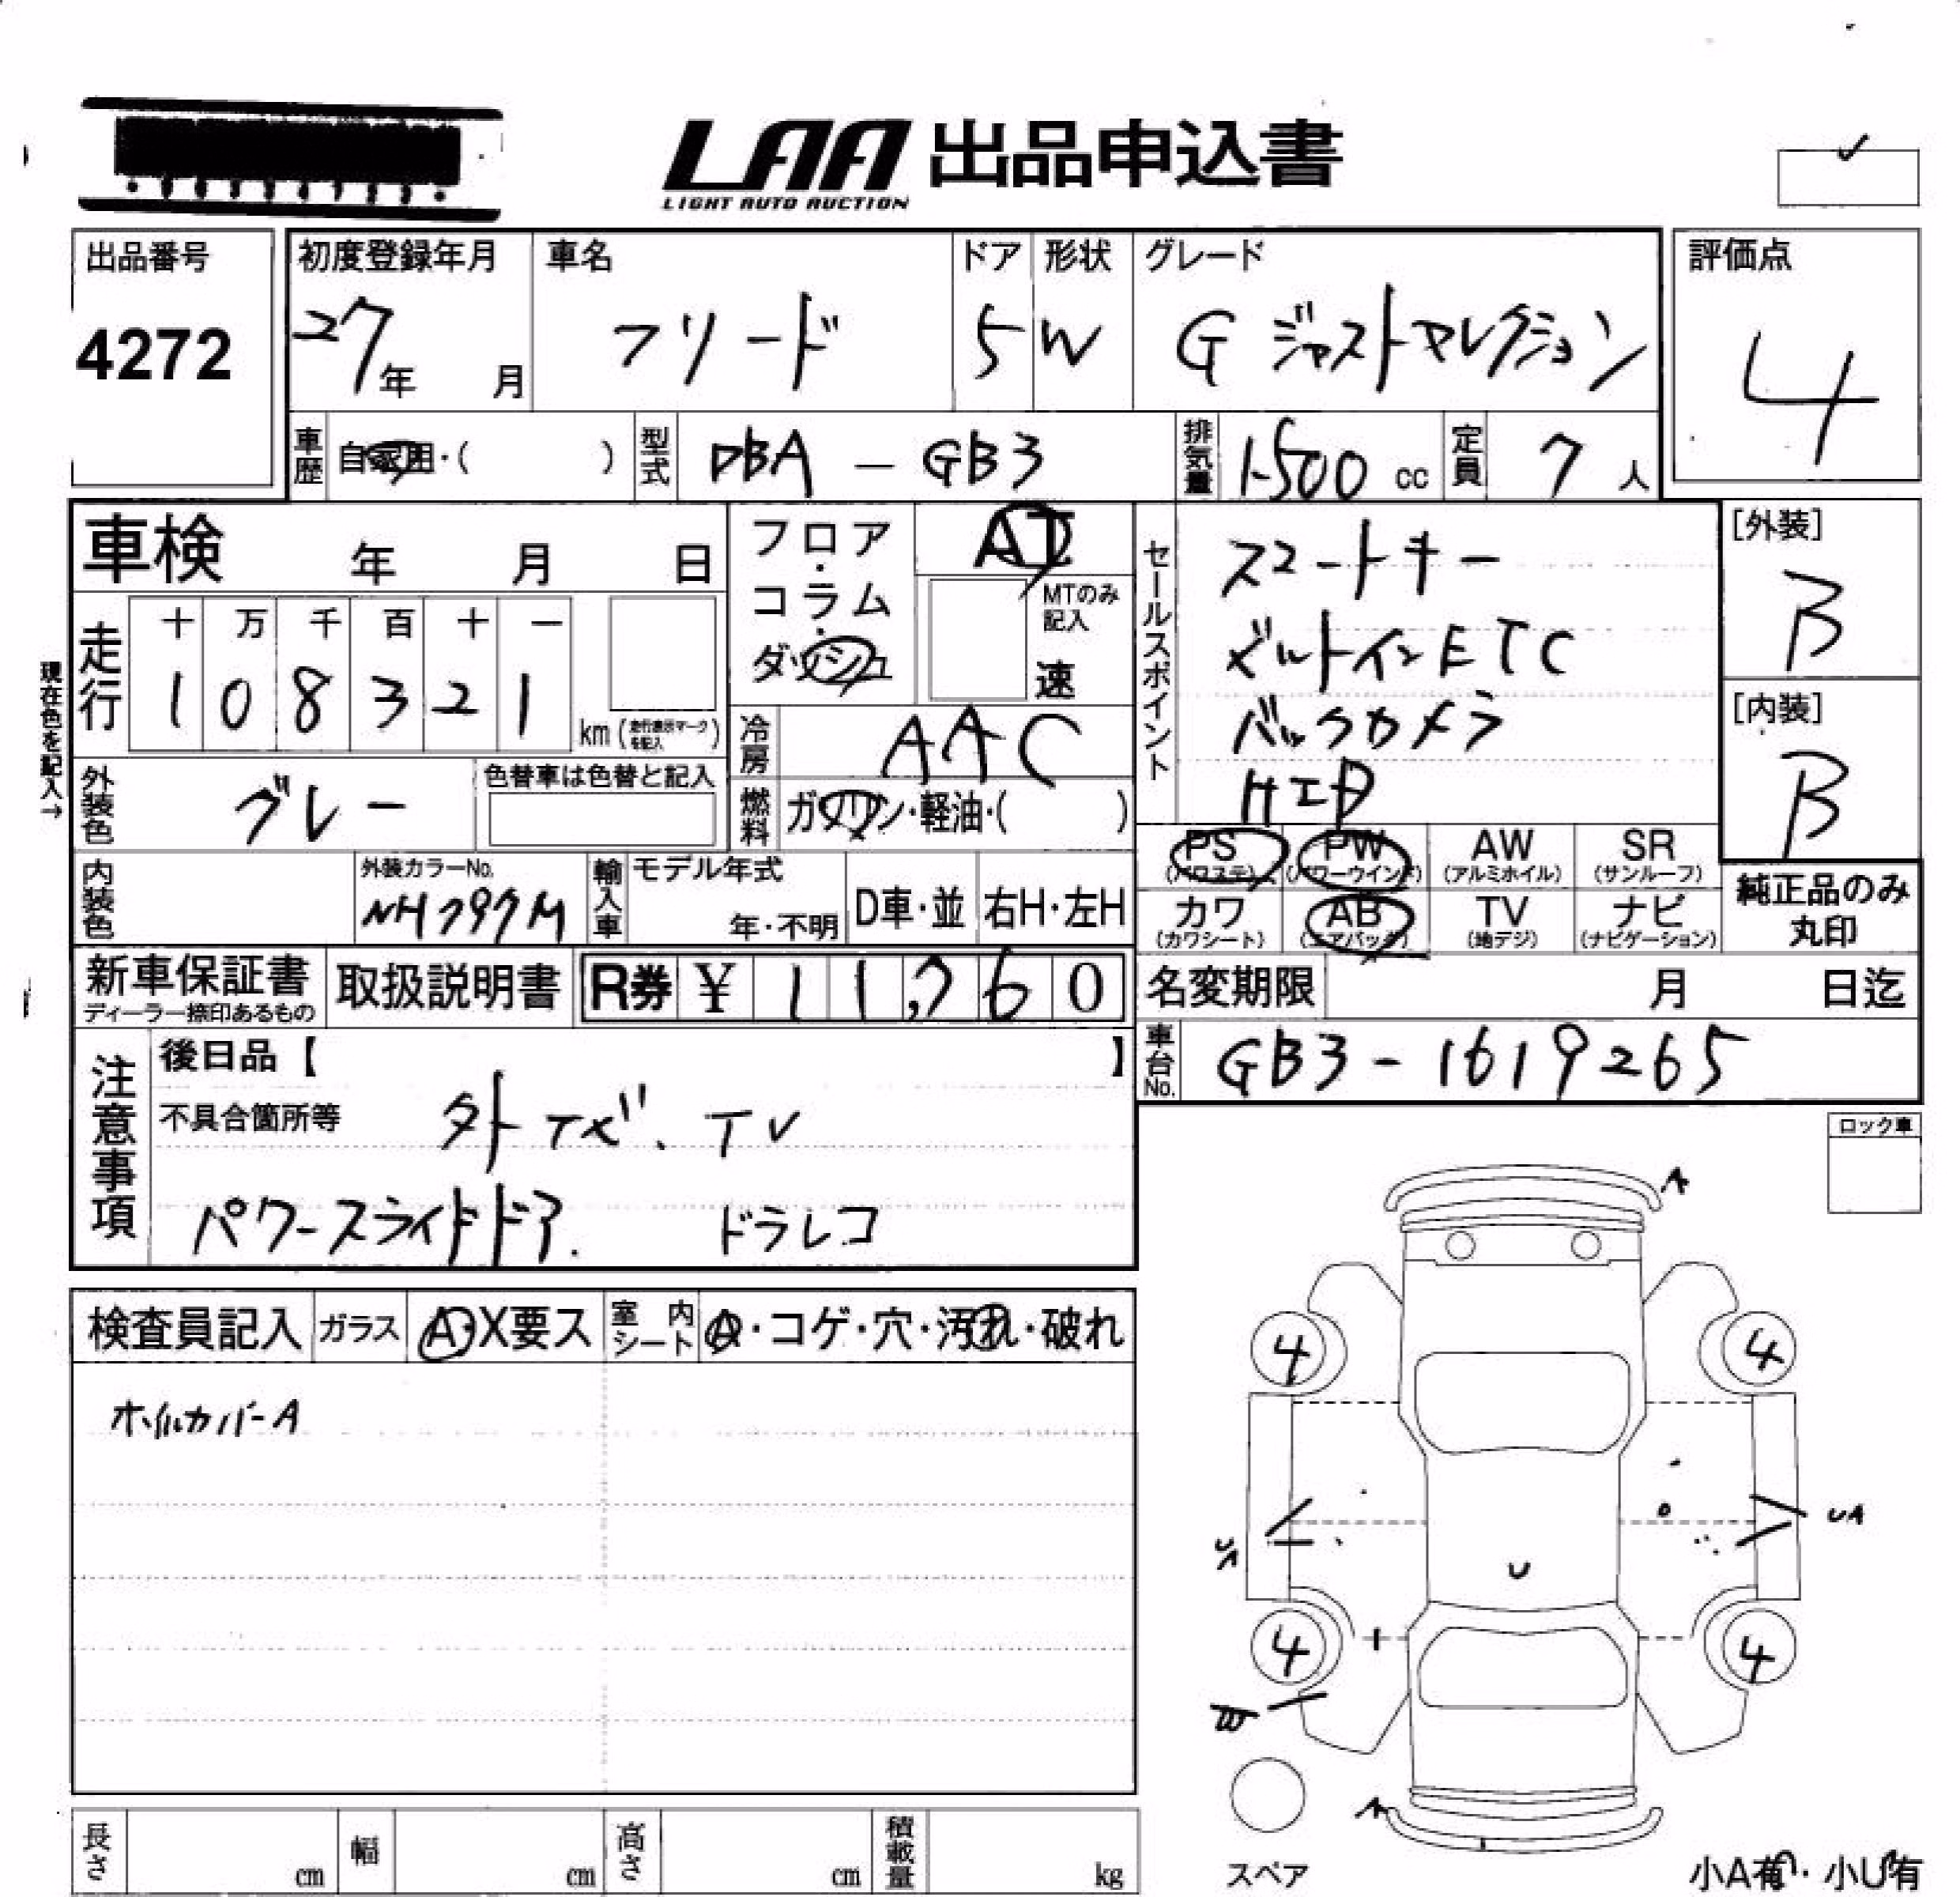 LAA 出品申込書
LIGHT AUTO AUCTION
出品番号
4272
初度登録年月
27年 月
車名
フリード
ドア
5
形状
W
グレード
G ジャストセレクション
評価点
4
車歴
自家用・( )
型式
DBA - GB3
排気量
1500 cc
定員
7 人
車検 年 月 日
現在色を記入→
走行
十 万 千 百 十 一
1 0 8 3 2 1
km (走行表示マークを記入)
フロア・コラム・ダッシュ
AT
MTのみ記入
速
冷房
AAC
燃料
ガソリン・軽油・( )
外装色
グレー
色替車は色替と記入
内装色
外装カラーNo.
NH797M
輸入車
モデル年式
年・不明
D車・並
右H・左H
セールスポイント
スマートキー
ビルトインETC
バックカメラ
HID
[外装]
B
[内装]
B
PS (パワステ)
PW (パワーウインド)
AW (アルミホイル)
SR (サンルーフ)
カワ (カワシート)
AB (エアバック)
TV (地デジ)
ナビ (ナビゲーション)
純正品のみ丸印
新車保証書
ディーラー捺印あるもの
取扱説明書
R券 ¥ 11,760
名変期限 月 日迄
車台No.
GB3-1619265
注意事項
後日品【 】
不具合箇所等
外ナビ. TV
パワースライドドア. ドラレコ
ロック車
検査員記入
ガラス
A・X要ス
室内シート
A・コゲ・穴・汚れ・破れ
ホイルカバーA
A
4
4
UA
UA
U
4
4
A
スペア
長さ cm
幅 cm
高さ cm
積載量 kg
小A有・小U有